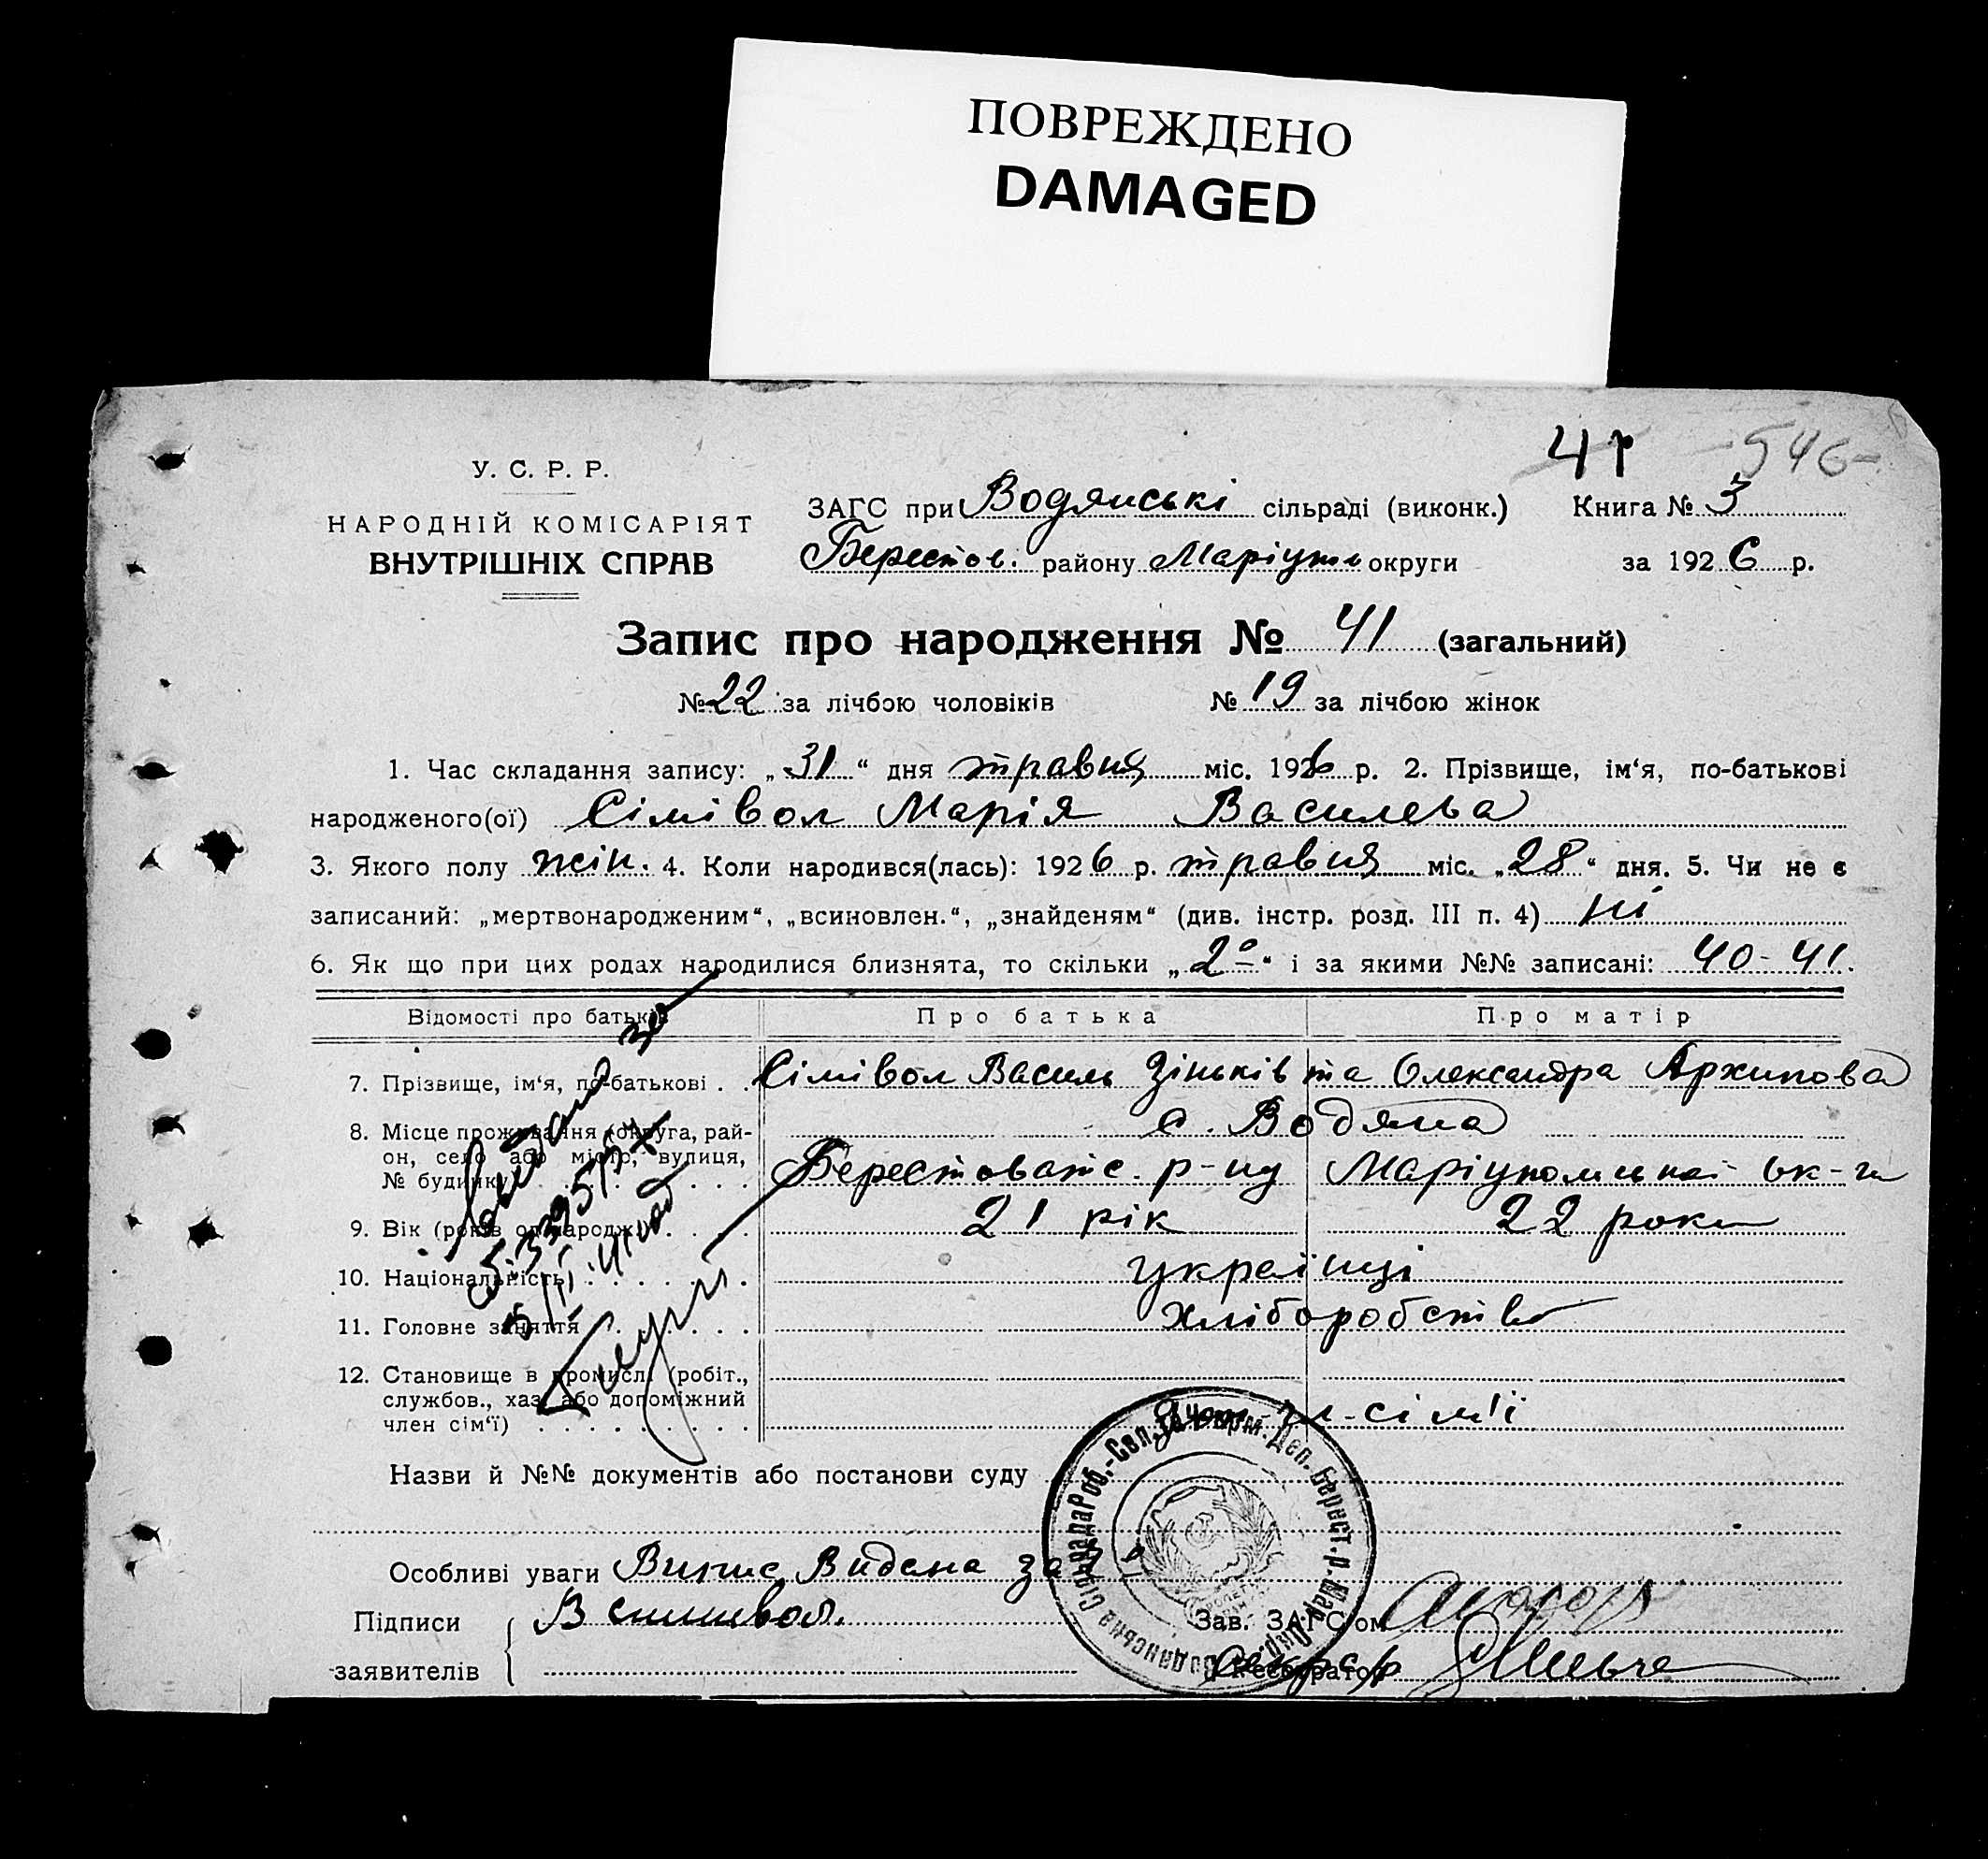 ПОВРЕЖДЕНО
DAMAGED
41 -546-
У. С. Р. Р.
НАРОДНІЙ КОМІСАРІЯТ
ВНУТРІШНІХ СПРАВ
ЗАГС при Водянські сільраді (виконк.) Книга № 3
Берестов. району Маріуп округи за 1926 р.
Запис про народження № 41 (загальний)
№ 22 за лічбою чоловіків № 19 за лічбою жінок
1. Час складання запису: „31“ дня травня міс. 1926 р. 2. Прізвище, ім‘я, по-батькові
народженого(ої) Сімівол Марія Василева
3. Якого полу жін. 4. Коли народився(лась): 1926 р. травня міс. „28“ дня. 5. Чи не є
записаний: „мертвонародженим“, „всиновлен.“, „знайденям“ (див. інстр. розд. III п. 4) ні
6. Як що при цих родах народилися близнята, то скільки „2º“ і за якими №№ записані: 40-41.
Відомості про батьків Про батька Про матір
7. Прізвище, ім‘я, по-батькові . . Сімівол Василь Зіньків та Олександра Архипова
8. Місце проживання (округа, рай- с. Водяна
он, село або місто, вулиця, Берестоватс. р-ну Маріупольської ок-ги
№ будинку
9. Вік (років од народж.) 21 рік 22 роки
10. Національність українці
11. Головне заняття хліборобство
12. Становище в промислі (робіт.,
службов., хаз. або допоміжний
член сім‘ї) чл-сім'ї
Назви й №№ документів або постанови суду
Особливі уваги Випис Видана за
Підписи В симивол. Зав. ЗАГС‘ом
заявителів Реєстратор